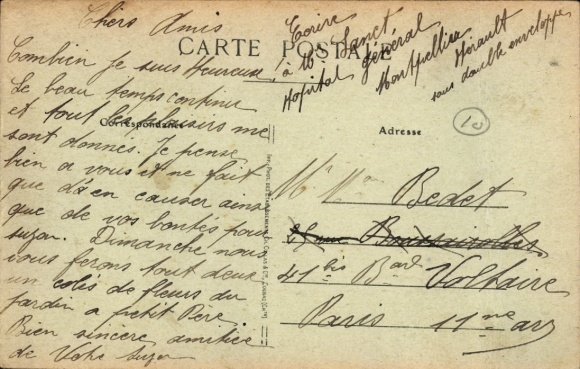 Chers Amis
Combien je suis Heureuse!
Le beau temps continu
et tout les plaisirs me
sont donnés. Je pense
bien a vous et ne fait
que d'en causer ainsi
que de vos bontés pour
suzon. Dimanche nous
vous ferons tout deux
un colis de fleurs du
jardin a petit Père
Bien sincère amitiée
de Votre Suzon
CARTE POSTALE
Correspondance
Adresse
Ecrire
à Mr Sanct
Hopital Général
Montpellier Hérault
sous double enveloppe
10
Mr Mme Bedet
rue
41 bis Bard Voltaire
Paris 11me arr